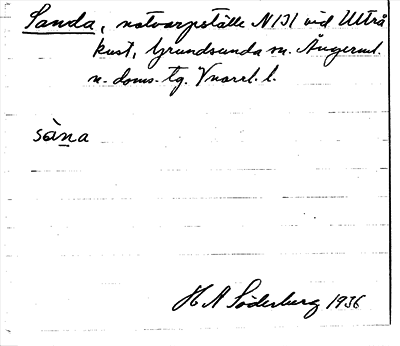 Sanda, notvarpställe N 131 vid Ulträ
kust, Grundsunda sn. Ångerml.
n. doms. tg. Vnorrl. l.
sàna
H A Söderberg 1936